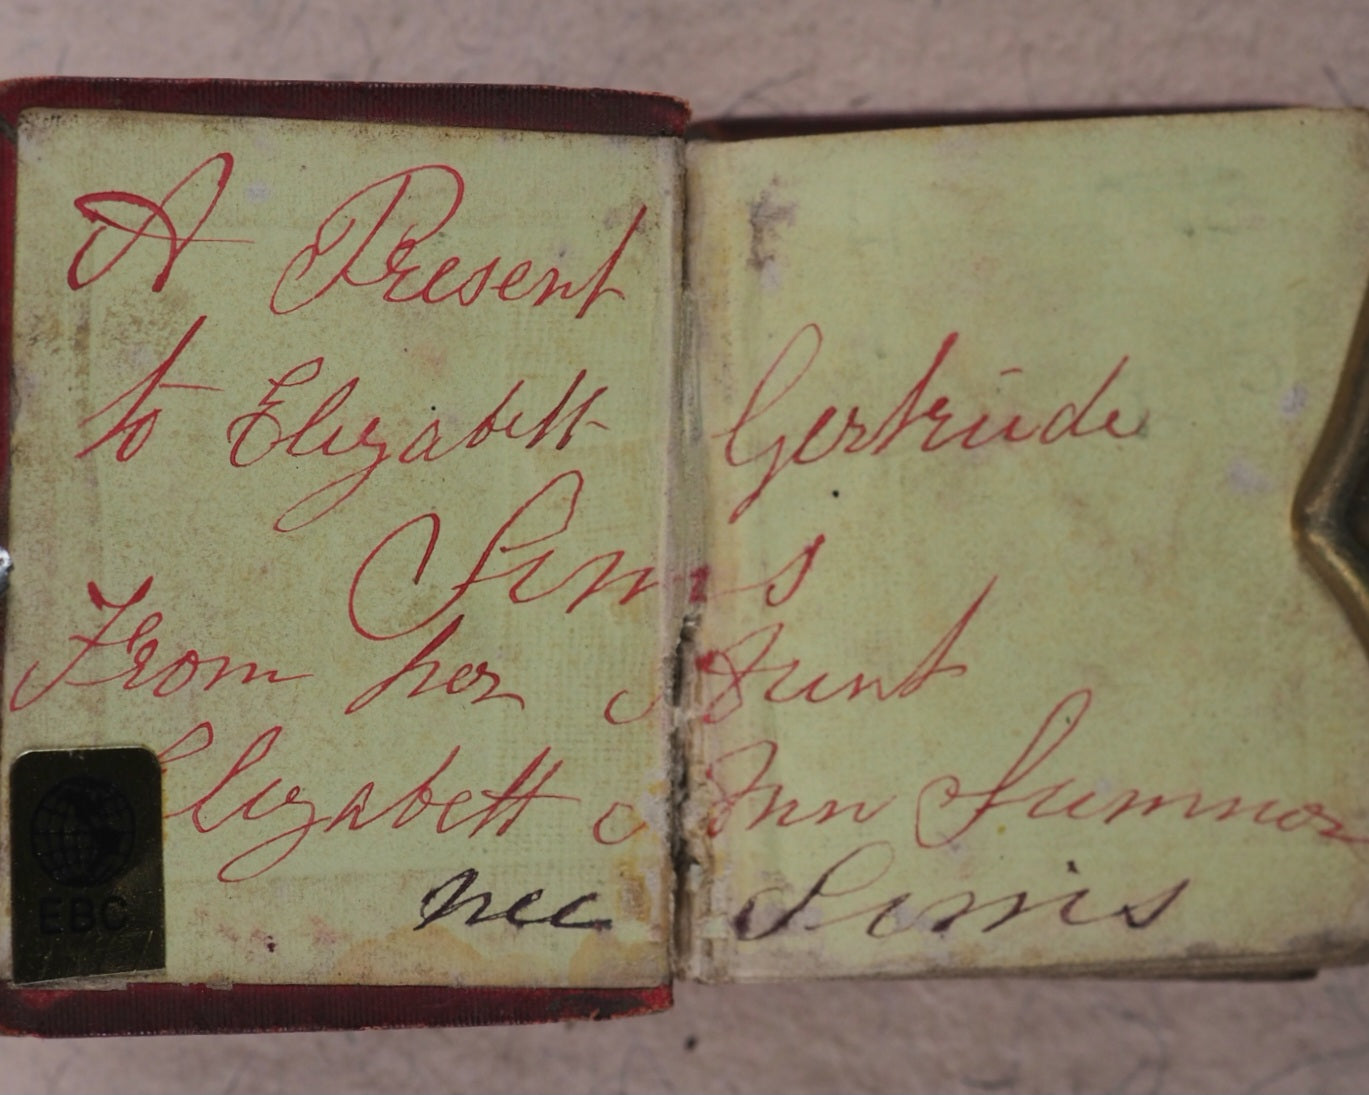 A Present
to Elizabeth Gertrude
Sims
From her Aunt
Elizabeth Ann Sumnor
nee Sims
EBC